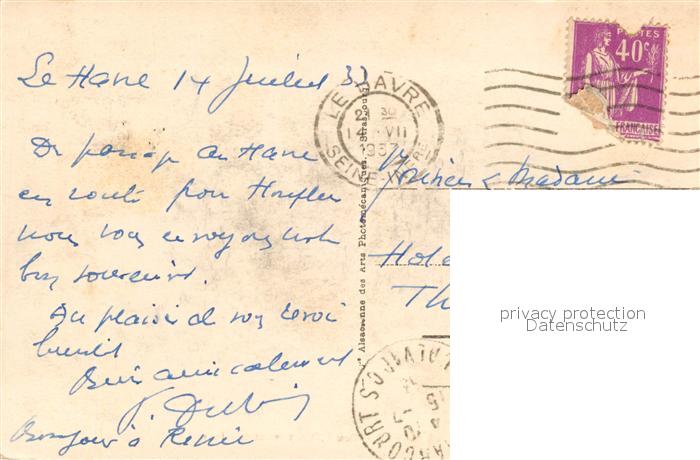 Le Havre 14 Juillet 37
De passage au Havre
en route pour Honfleur
nous vous envoyons notre
bon souvenir.
Au plaisir de vous revoir
bientôt
Bien amicalement
Bonjour à René
LE HAVRE
30
VII
1937
SEINE
POSTES
40c
FRANÇAISE
Alsacienne des Arts Photomécaniques, Strasbourg
Madame
privacy protection
Datenschutz